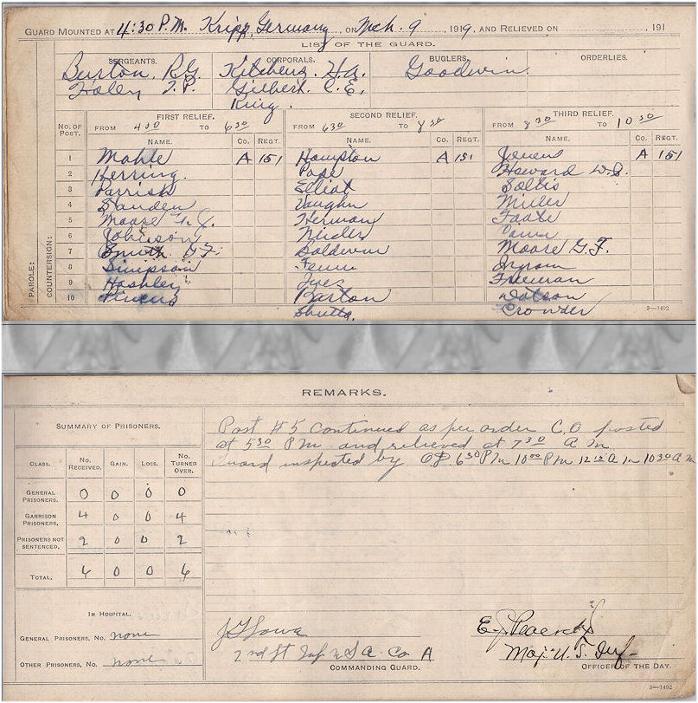 GUARD MOUNTED AT 4:30 P.M. Kripp, Germany, ON Mch. 9 1919. AND RELIEVED ON 191
LIST OF THE GUARD.
SERGEANTS. CORPORALS. BUGLERS. ORDERLIES.
Burton, R.G. Kitchens, H.A. Goodwin.
Foley J.P. Gilbert C.E.
King.
PAROLE:
COUNTERSIGN:
No. of Post. FIRST RELIEF. SECOND RELIEF. THIRD RELIEF.
FROM 4 30 TO 6 30 FROM 6 30 TO 8 30 FROM 8 30 TO 10 30
NAME. Co. REGT. NAME. Co. REGT. NAME. Co. REGT.
1 Mahle A 151 Hampton A 151 A 151
2 Herring Pope Howard
3 Parrish Elliot Soltis
4 Sanden Vaughn Miller
5 Moore Herman Foote
6 Johnson
7 Smith Baldwin Moore G.F.
8 Simpson Ingram
9 Hashley Ives Freeman
10 Barton Watson
Shutts. Crowder
3-1402
REMARKS.
SUMMARY OF PRISONERS.
CLASS. No. RECEIVED. GAIN. LOSS. No. TURNED OVER.
GENERAL PRISONERS. 0 0 0 0
GARRISON PRISONERS. 4 0 0 4
PRISONERS NOT SENTENCED. 2 0 0 2
TOTAL. 6 0 0 6
IN HOSPITAL.
GENERAL PRISONERS, No. none
OTHER PRISONERS, No. none
Post #5 continued as per order C.O posted
at 5 30 P M and relieved at 7 30 A M
Guard inspected by OD 6 30 PM 10 00 PM 12 15 A M 10 30 A M
2nd Lt Inf U S A. Co A
COMMANDING GUARD.
Maj. U. S. Inf-
OFFICER OF THE DAY.
3-1402